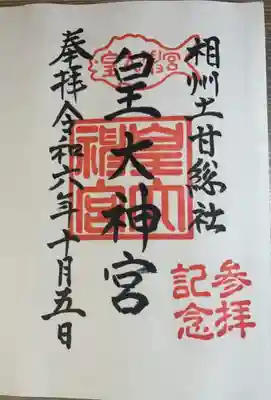 相州土甘総社
参拝
記念
皇大神宮
皇大神宮
奉拝 令和六年十月五日